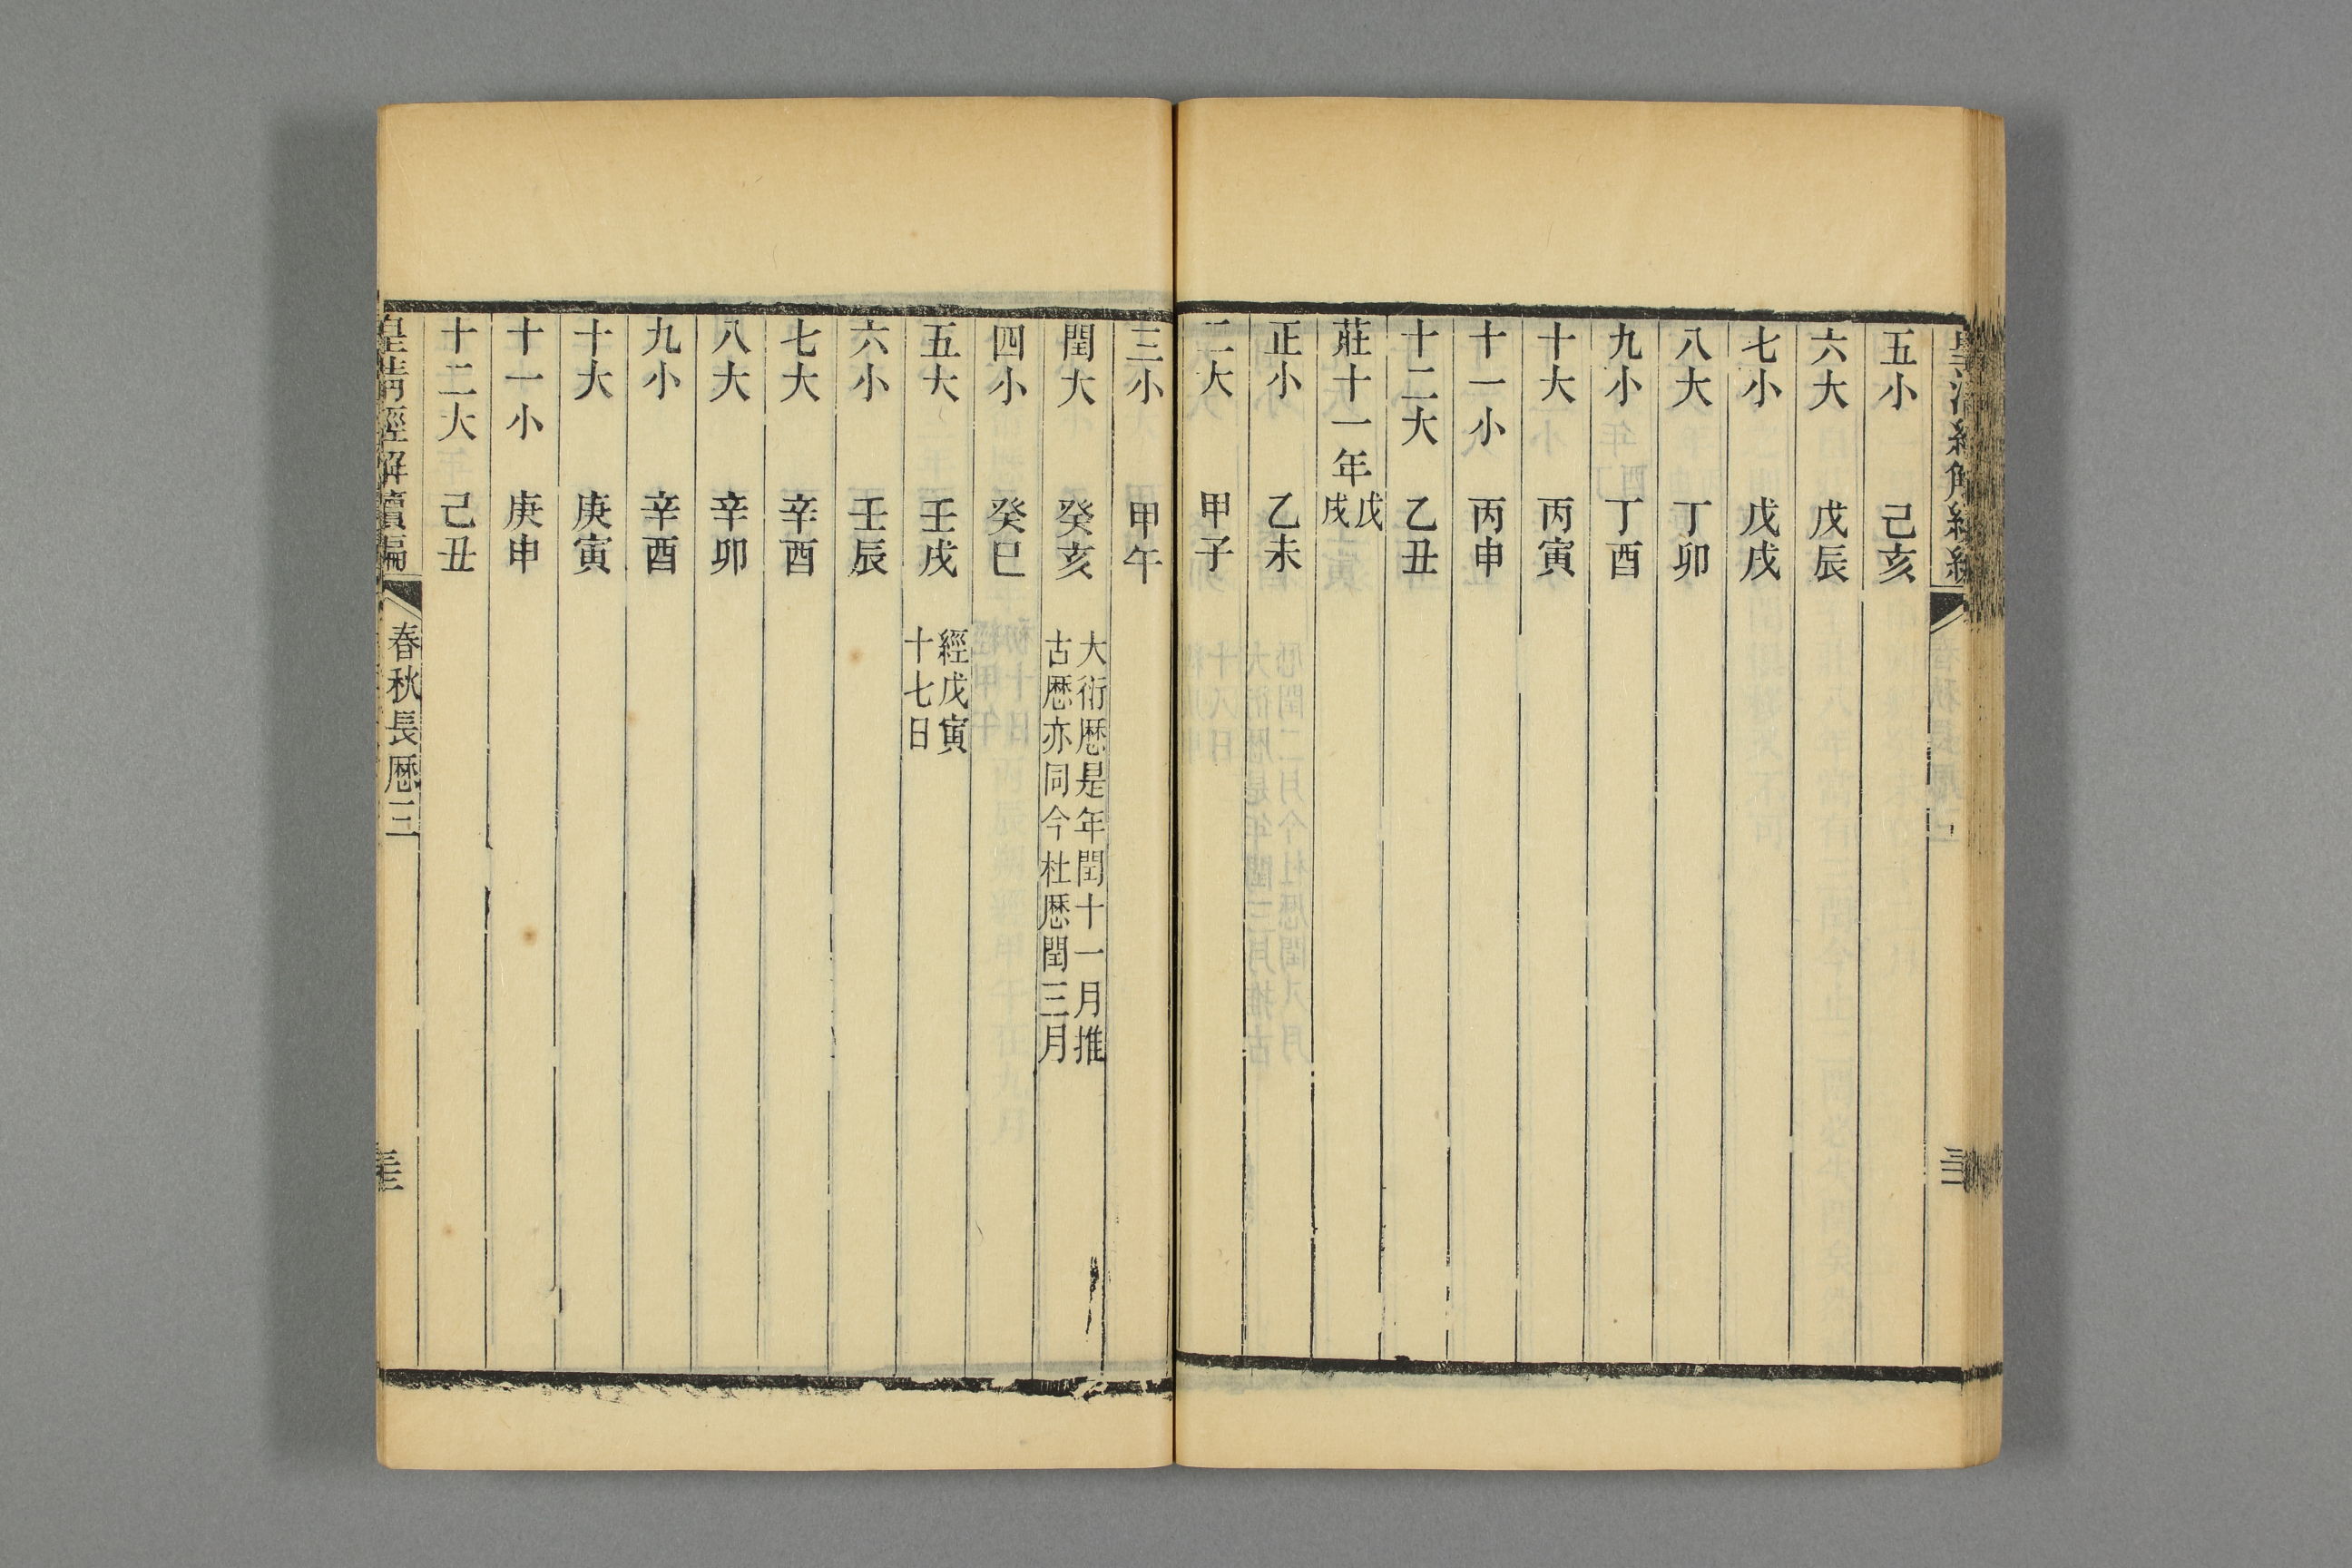 五小 己亥
六大 戊辰
七小 戊戌
八大 丁卯
九小 丁酉
十大 丙寅
十一小 丙申
十二大 乙丑
莊十一年戊戌
正小 乙未
二大 甲子
三小 甲午
閏大 癸亥 大衍厯是年閏十一月推
古厯亦同今杜厯閏三月
四小 癸巳
五大 壬戌 經戊寅
十七日
六小 壬辰
七大 辛酉
八大 辛卯
九小 辛酉
十大 庚寅
十一小 庚申
十二大 己丑
皇清經解續編 春秋長厯三